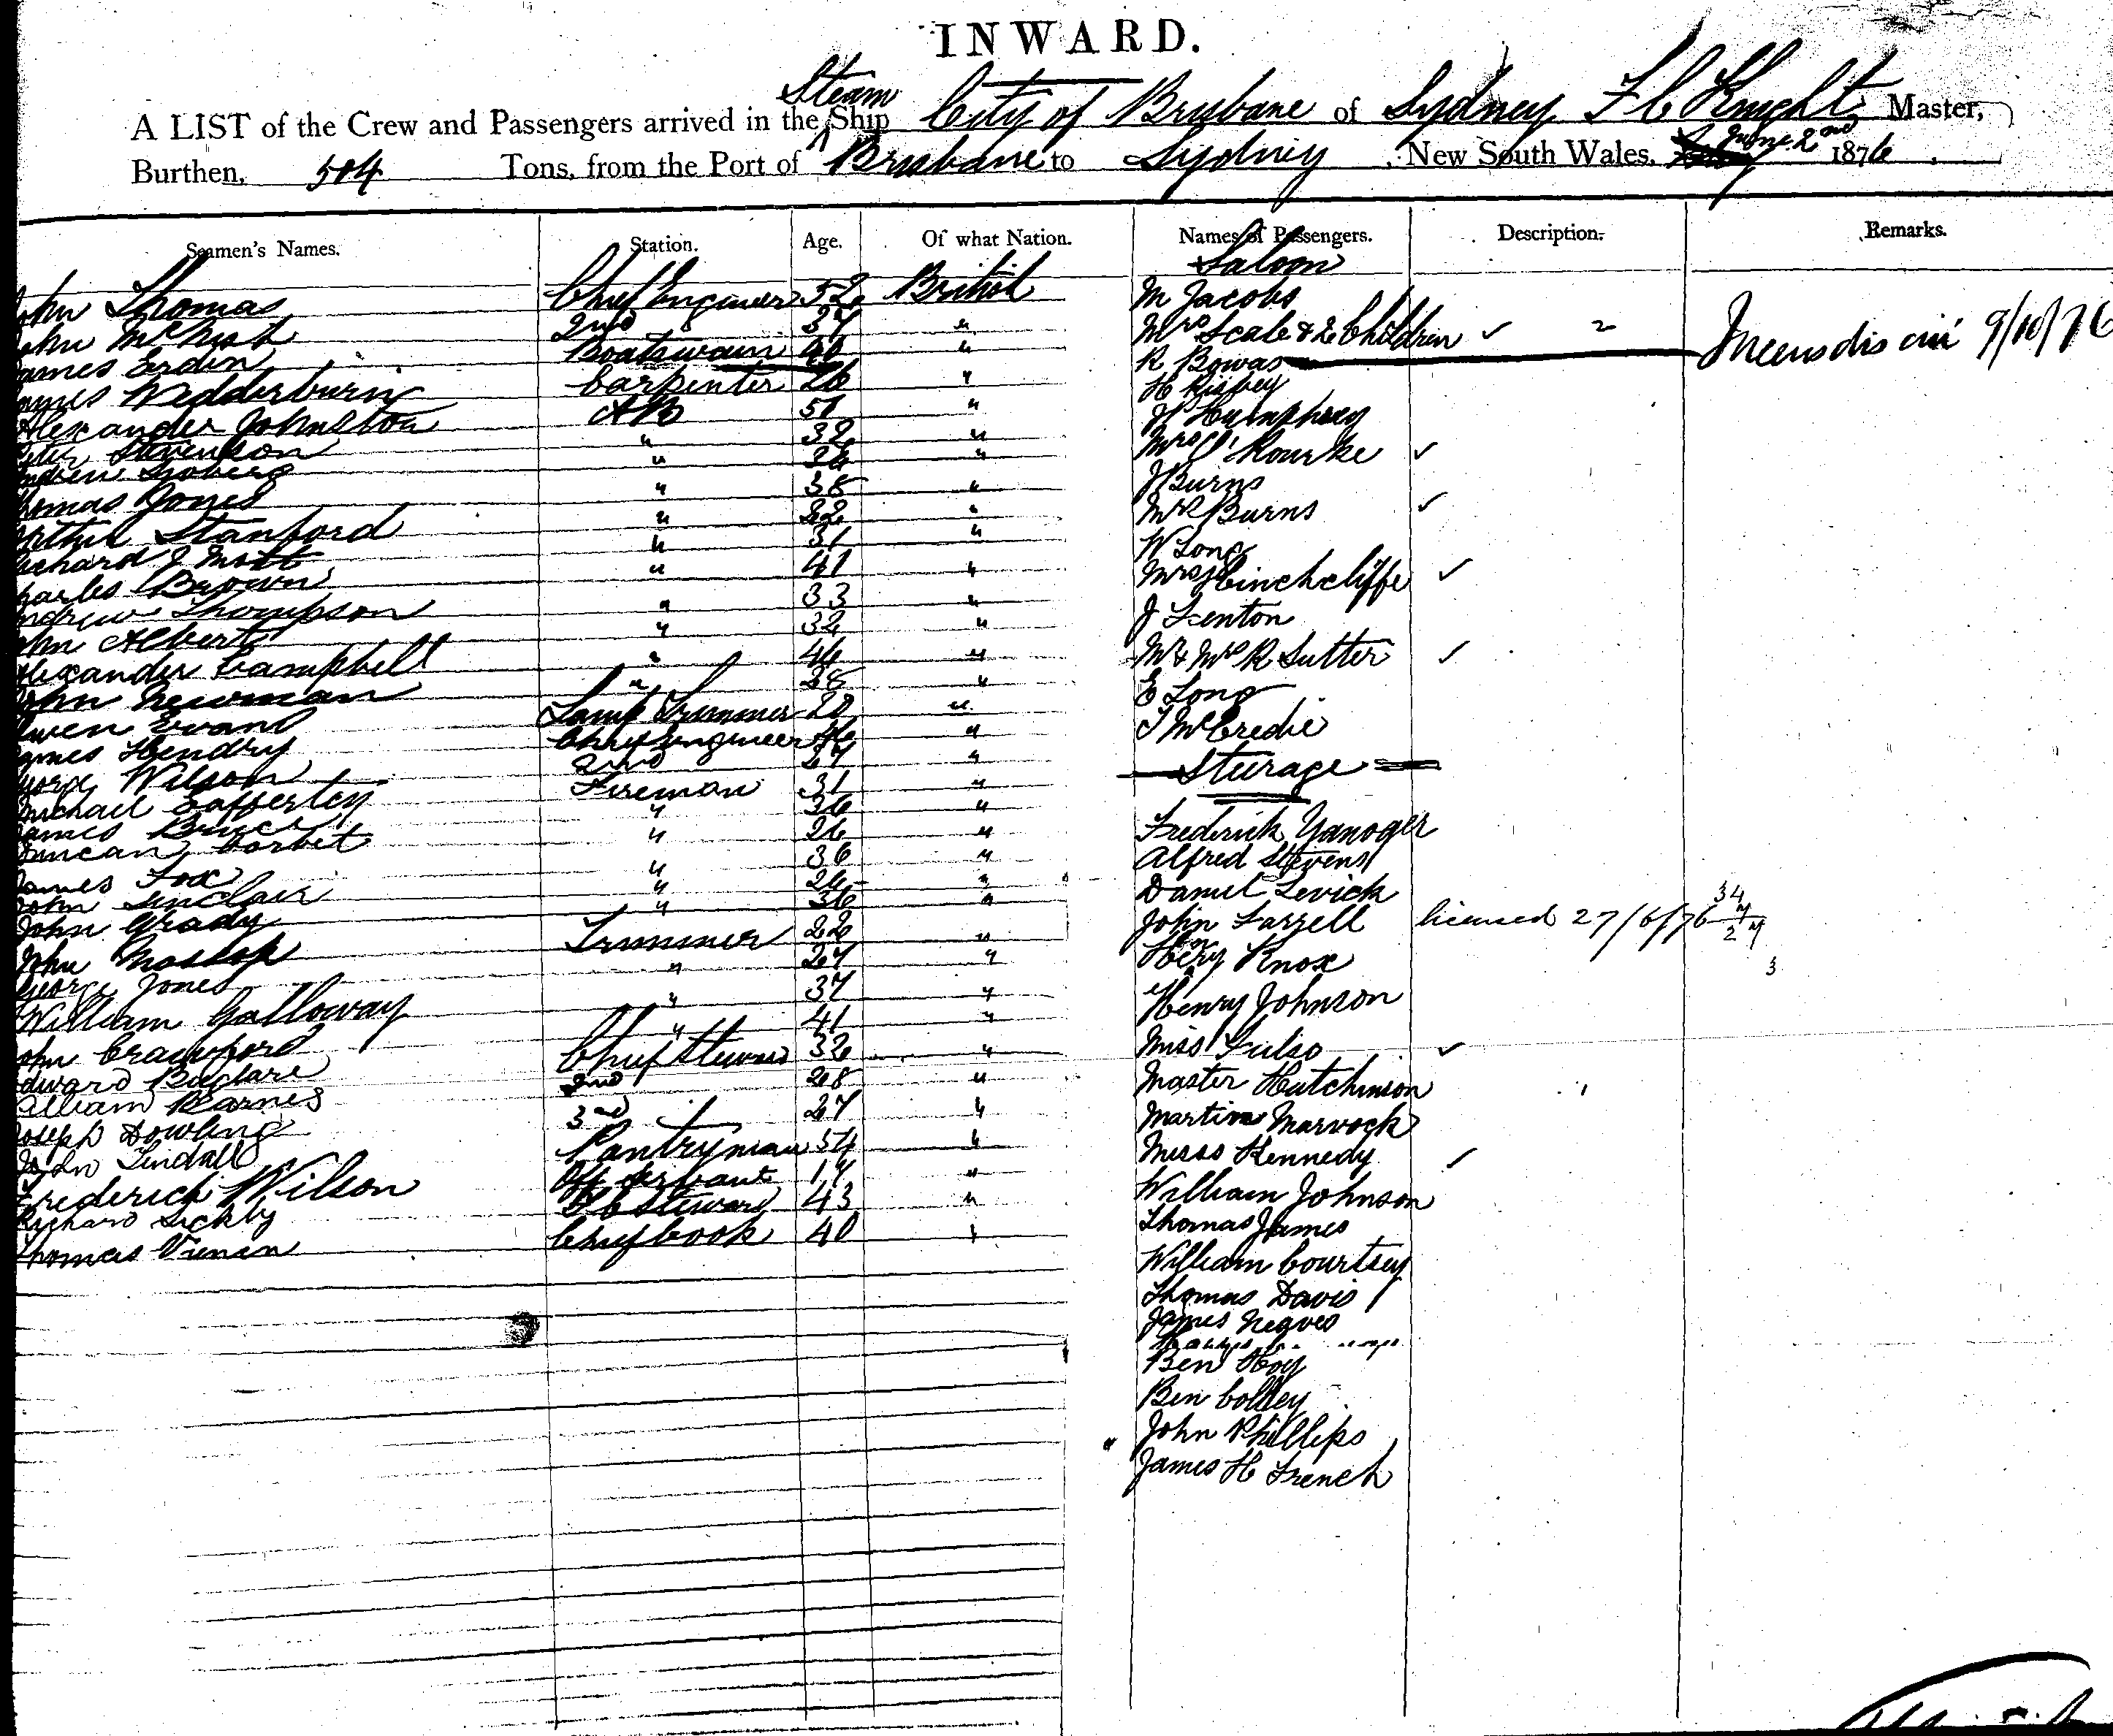 INWARD.
Steam
A LIST of the Crew and Passengers arrived in the Ship City of Brisbane of Sydney F C Knight Master,
Burthen, 504 Tons, from the Port of Brisbane to Sydney, New South Wales, June 2nd 1876.
Seamen's Names. Station. Age. Of what Nation. Names of Passengers. Description. Remarks.
Saloon
John Thomas Chief Engineer 52 British M Jacobs
John McNish 2nd 37 " Mrs Scale & 2 Children ✓ 2
James Erdin Boatswain 40 " R Bowas 9/10/76
James Wedderburn Carpenter 26 " H Risbey
Alexander Johnston AB 51 " J Humphrey
Peter Stevenson " 32 " Mrs O'Rourke ✓
Andrew Sjoberg " 36 " J Burns
Thomas Jones " 38 " Mrs Burns ✓
Arthur Stanford " 22 " W Long
Richard J Mott " 31 " Mrs Hinchcliffe ✓
Charles Brown " 41 " J Fenton
Andrew Thompson " 33 " Mr & Mrs R Sutter ✓
John Albert " 32 " E Long
Alexander Campbell " 46 " T McCredie
John Newman " 28 "
Owen Evans Lamp Trimmer 20 " Steerage
James Hendry Chief Engineer 46 "
George Wilson 2nd 27 " Frederick Yanoger
Michael Cafferten Fireman 31 " Alfred Stevens
James Bruce " 36 " Daniel Levick
Duncan Corbet " 26 " John Farrell licensed 27/6/76 34
James Fox " 36 " Heny Knox
John Sinclair " 26 " Henry Johnson
John Grady " 36 " Miss Fulso ✓
John Mossop Trimmer 22 " Master Hutchinson
George Jones " 27 " Martin Marvock
William Galloway " 37 " Misss Kennedy ✓
John Crawford " 41 " William Johnson
Edward Buclare Chief Steward 32 " Thomas James
William Barnes 2nd 28 " William Courtsey
Joseph Dowling 3rd 27 " Thomas Davis
John Tindall Pantryman 54 " James Negves
Frederick Wilson Off Servant 17 " Ben Hoy
Richard Sickby FC Steward 43 " Ben Colley
Thomas Vienan Chief Cook 40 " John Phillips
James H French